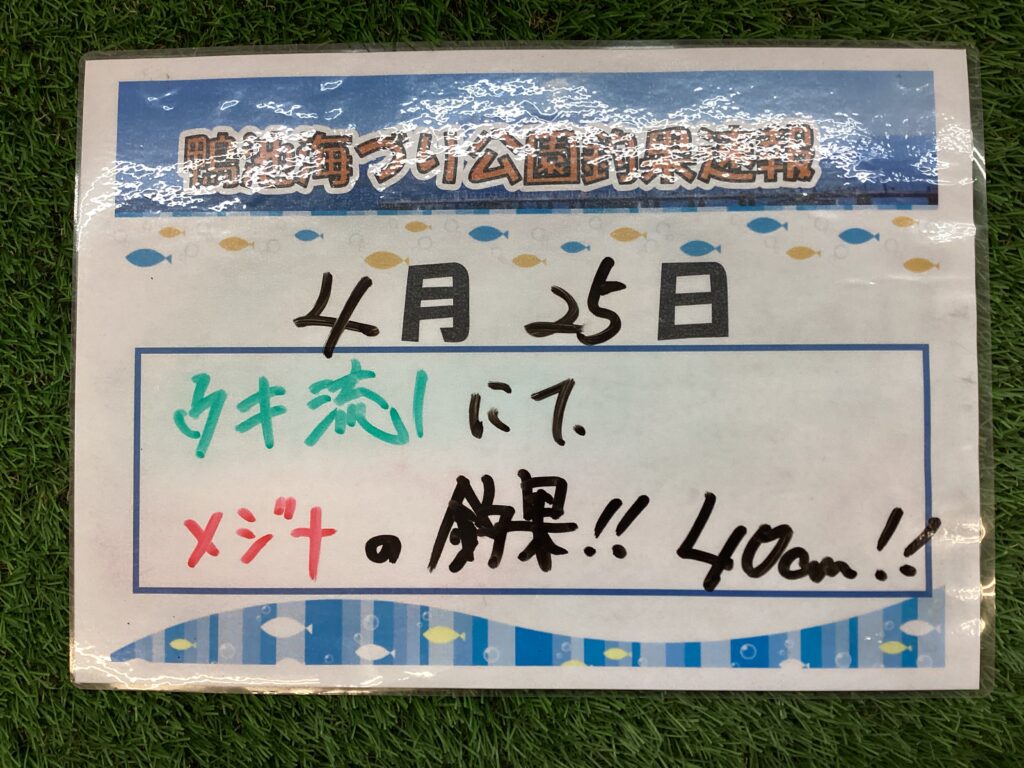 鴨池海づり公園釣果速報
4月25日
ウキ流しにて、
メジナの釣果!! 40cm!!